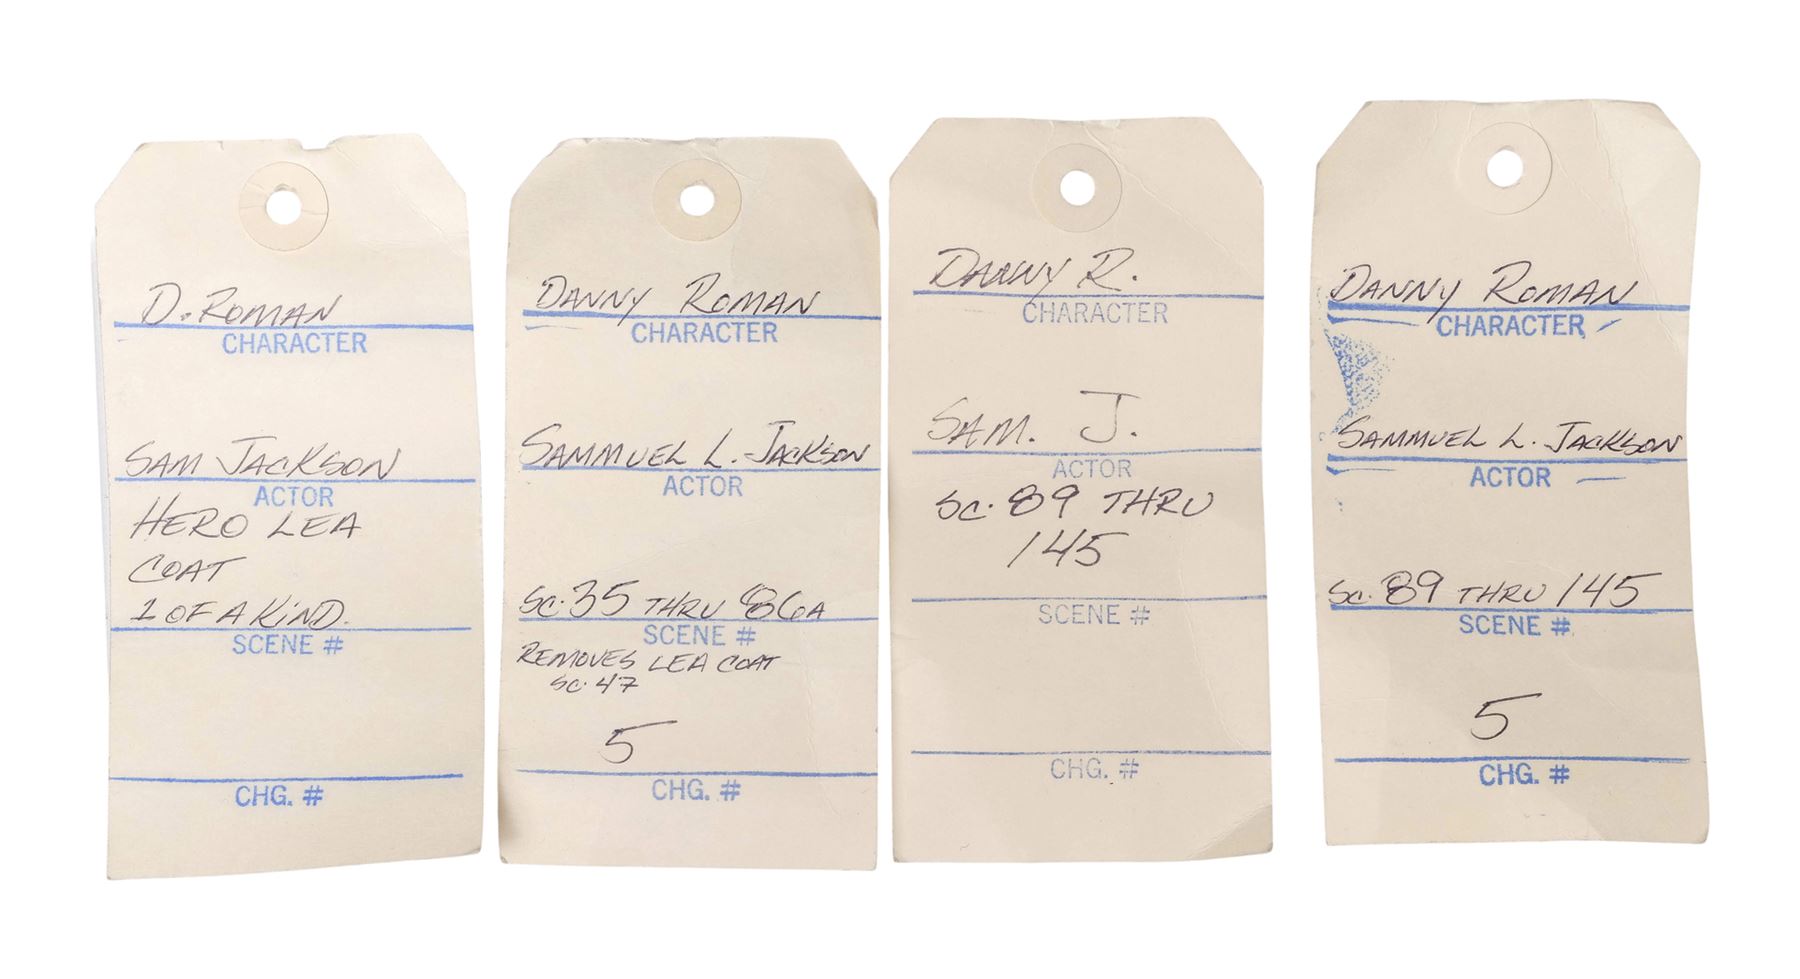 D. ROMAN
CHARACTER
SAM JACKSON
ACTOR
HERO LEA
COAT
1 OF A KIND.
SCENE #
CHG. #
DANNY ROMAN
CHARACTER
SAMMUEL L. JACKSON
ACTOR
SC. 35 THRU 86A
SCENE #
REMOVES LEA COAT
SC. 47
5
CHG. #
DANNY R.
CHARACTER
SAM. J.
ACTOR
SC. 89 THRU
145
SCENE #
CHG. #
DANNY ROMAN
CHARACTER
SAMMUEL L. JACKSON
ACTOR
SC. 89 THRU 145
SCENE #
5
CHG. #